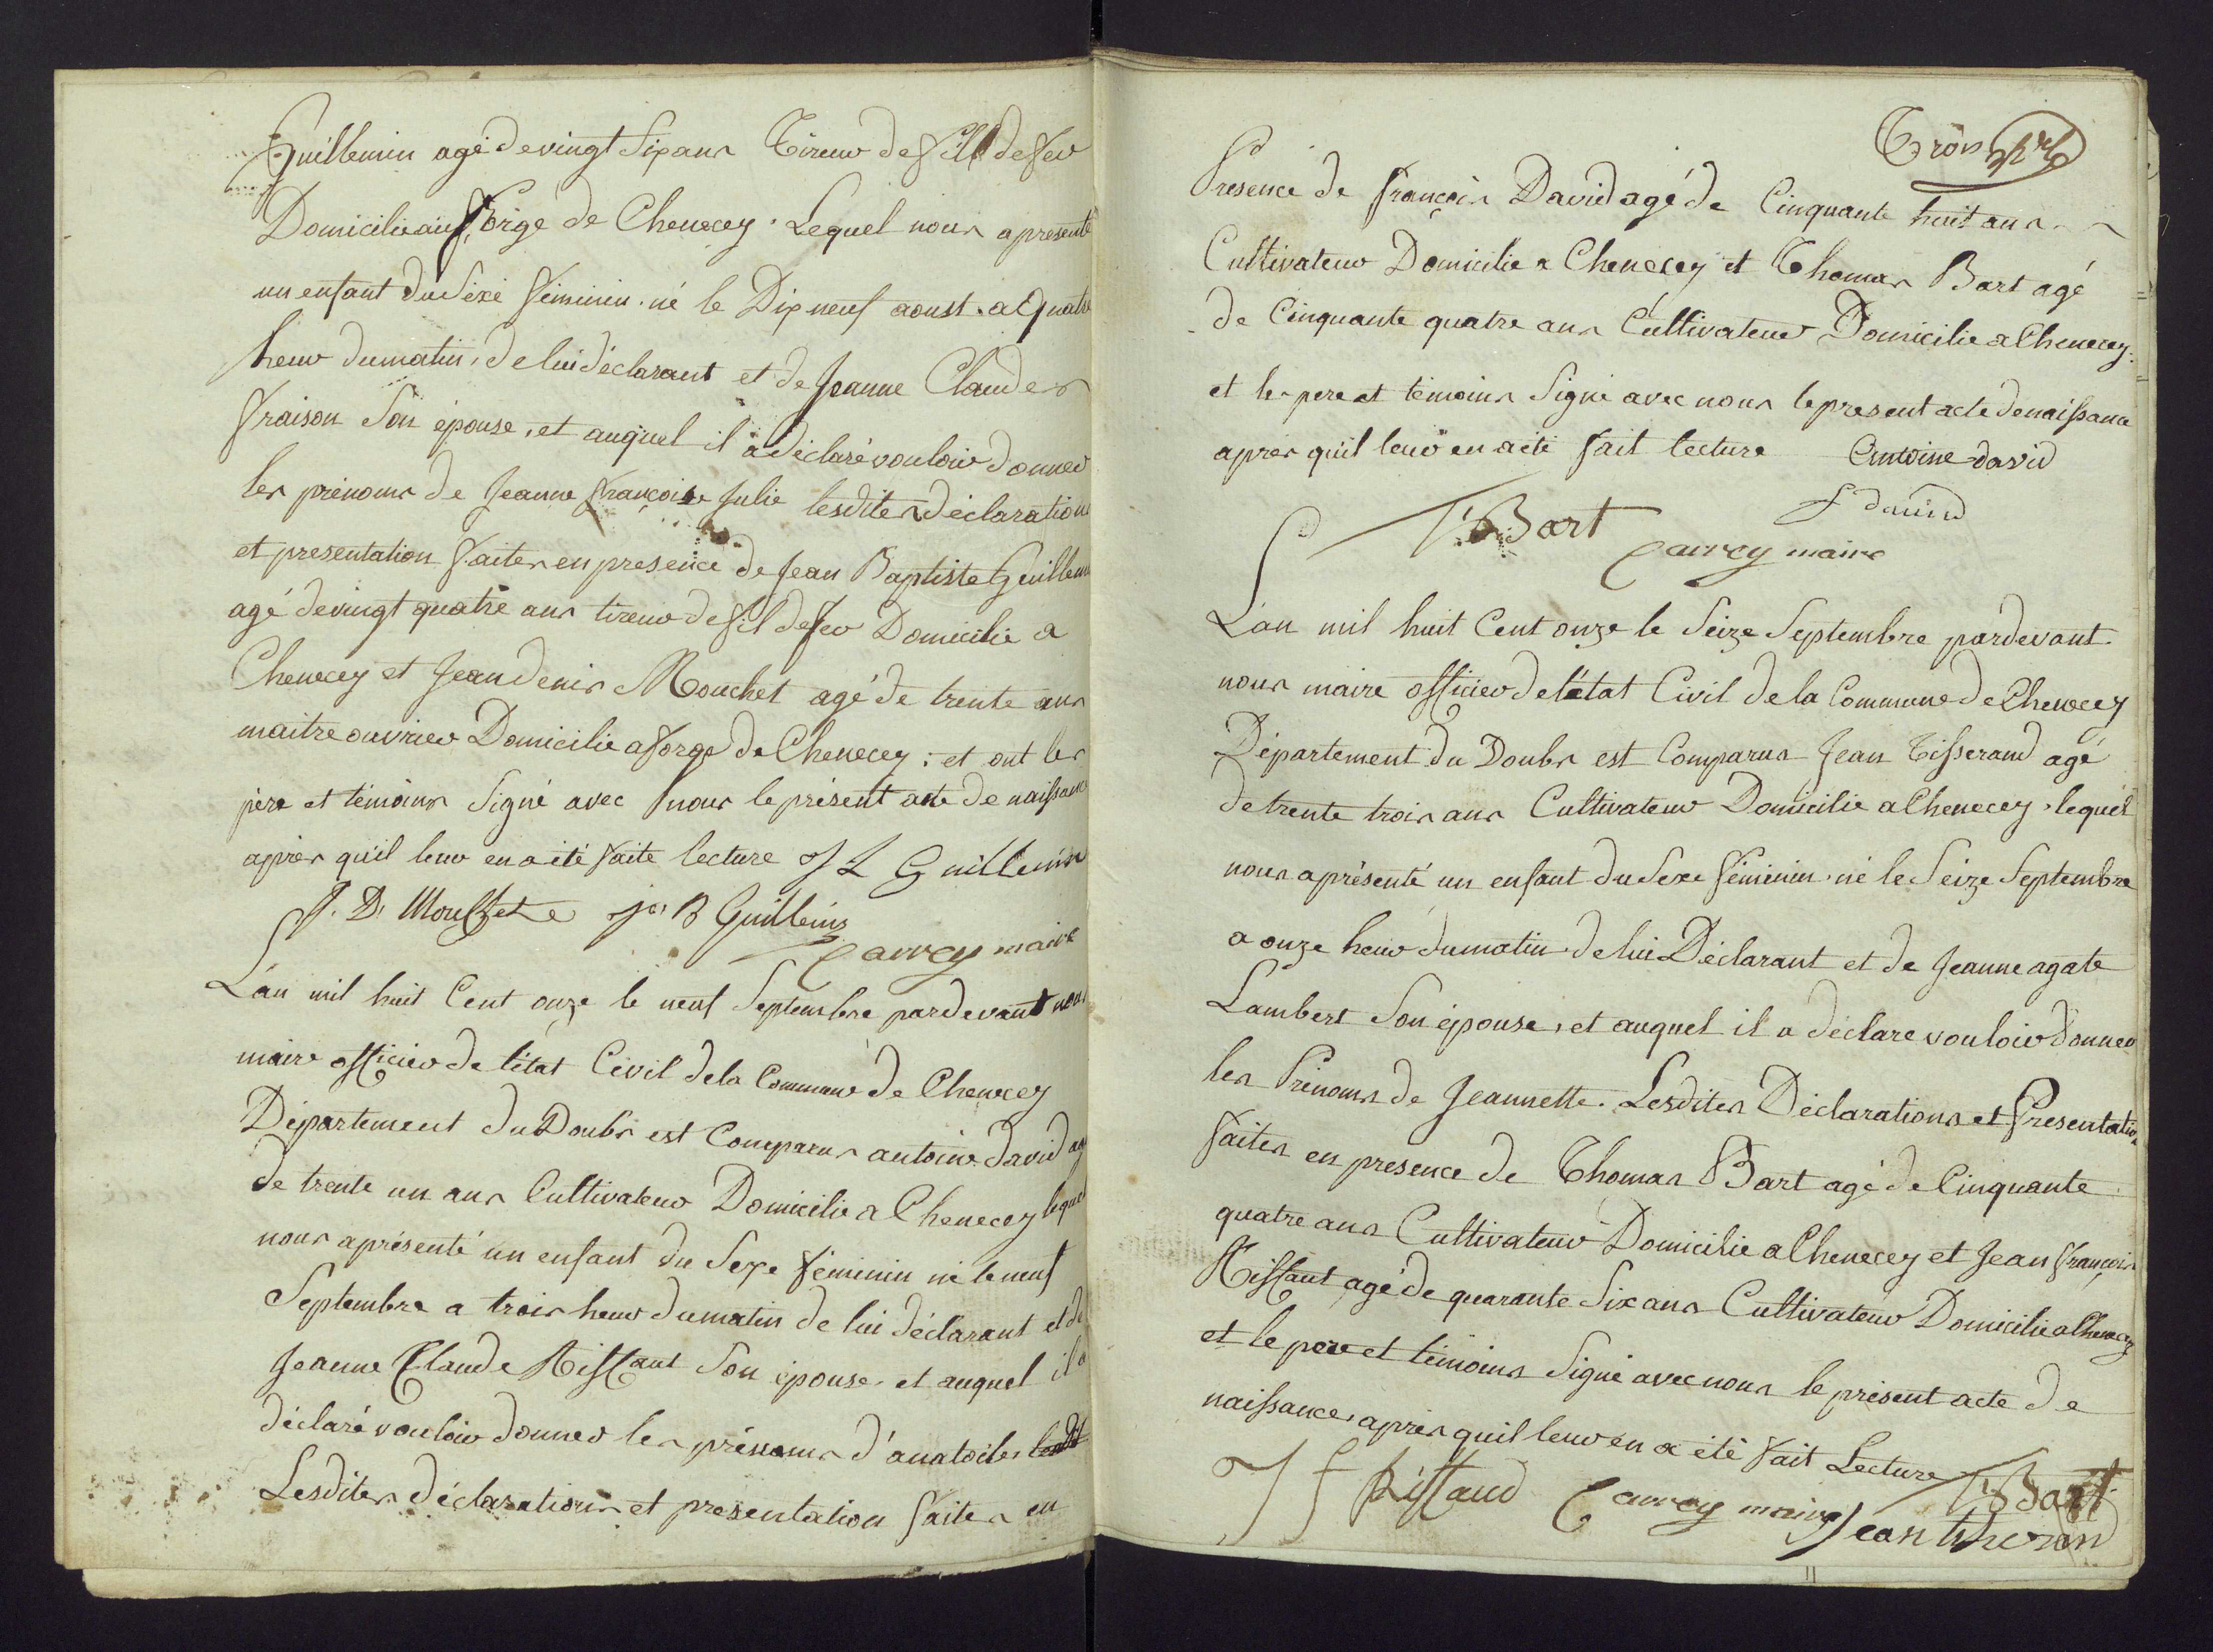 Guillemin agé de vingt six ans Tireur de fil de fer
Domicilié aux Forge de Chenecey. Lequel nous a presenté
un enfant du Sexe féminin. né le Dix neuf aoust. a Quatre
heur du matin, de lui déclarant et de Jeanne Claude
fraison Son épouse, et auquel il a déclaré vouloir donner
les prénoms de Jeanne françoise Julie lesdites déclaration
et presentation faites en presence de Jean Baptiste Guillemin
agé de vingt quatre ans tireur de fil de fer Domicilié a
Chenecey et Jean denis Mouchet agé de trente ans
maitre ouvrier Domicilié a forge de Chenecey; et ont les
père et témoins Signé avec nous le présent acte de naissance
après qu'il leur en a été faite lecture J L Guillemin
J. D. Mouchet J B Guillemin
Carrey maire
L'an mil huit Cent onze le neuf Septembre pardevant nous
maire officier de l'état Civil de la Commune de Chenecey
Département du Doubs est Comparus antoine David agé
de trente un ans Cultivateur Domicilié a Chenecey lequel
nous a présenté un enfant du Sexe féminin né le neuf
Septembre a trois heur du matin de lui déclarant et de
Jeanne Claude Rissaut Son épouse. et auquel il a
déclaré vouloir donner les prénoms d'anatoile,
Lesdites déclarations et presentation faites en
Trois
Presence de françois David agé de Cinquante huit ans
Cultivateur Domicilié a Chenecey et Thomas Bart agé
de Cinquante quatre ans Cultivateur Domicilié a Chenecey.
et les pere et témoins Signé avec nous le present acte de naissance
après qu'il leur en a été fait lecture Antoine david
f david
T Bart
Carrey maire
L'an mil huit Cent onze le Seize Septembre pardevant
nous maire officier de l'état Civil de la Commune de Chenecey
Département du Doubs est Comparus Jean Tisserand agé
de trente trois ans Cultivateur Domicilié a Chenecey, lequel
nous a présenté un enfant du Sexe féminin. né le Seize Septembre
a onze heur du matin de lui Déclarant et de Jeanne agate
Lambert Son épouse, et auquel il a déclare vouloir donner
les Prénoms de Jeannette. Lesdites Déclarations et Presentation
faites en presence de Thomas Bart agé de Cinquante
quatre ans Cultivateur Domicilié a Chenecey et Jean François
Rissaut agé de quarante Six ans Cultivateur Domicilié a Chenecey
et le pere et témoins Signé avec nous le présent acte de
naissance, après qu'il leur en a été fait Lecture T Bart
J f Rissaud Carrey maire Jean